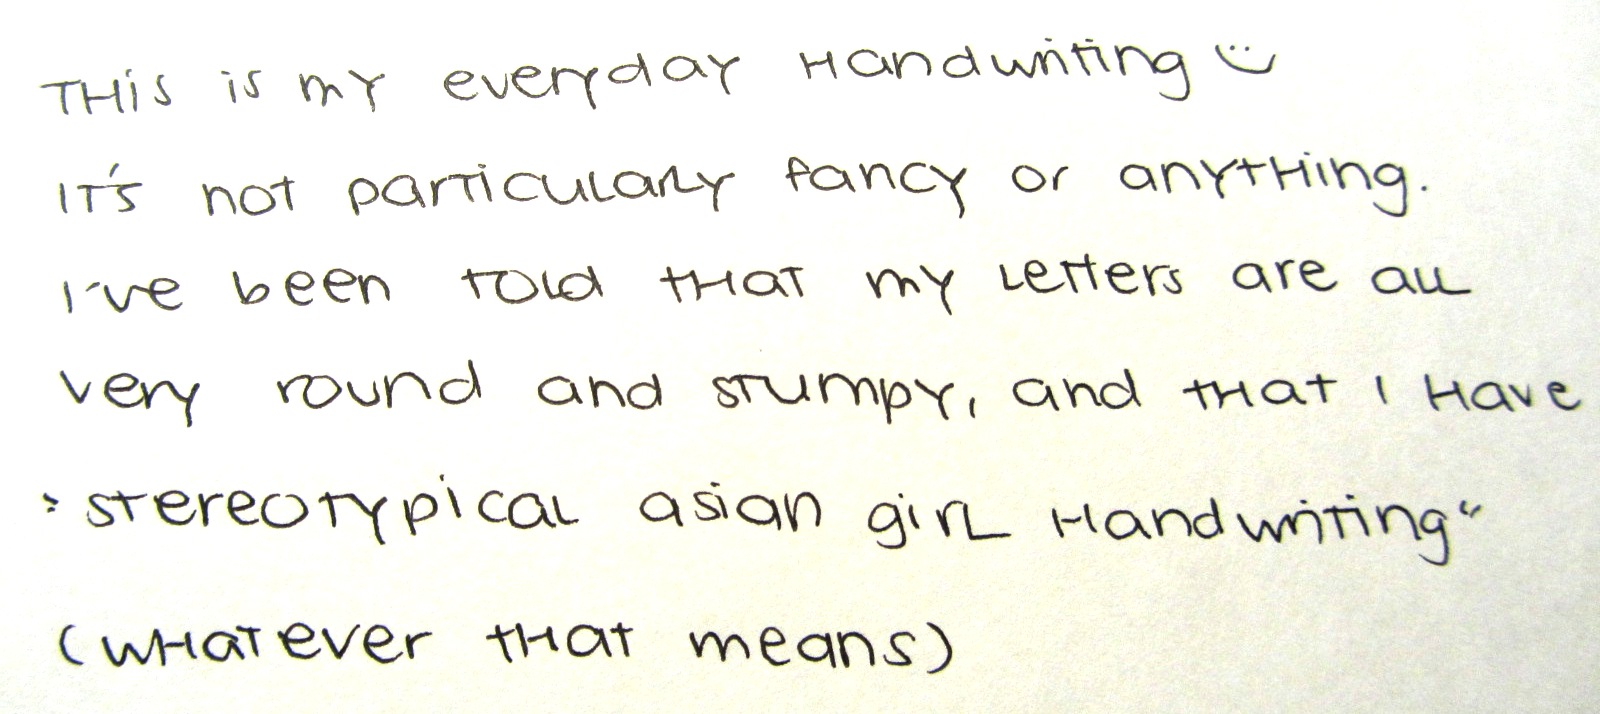 This is my everyday handwriting :)
It's not particularly fancy or anything.
I've been told that my letters are all
very round and stumpy, and that I have
"stereotypical asian girl handwriting"
(whatever that means)